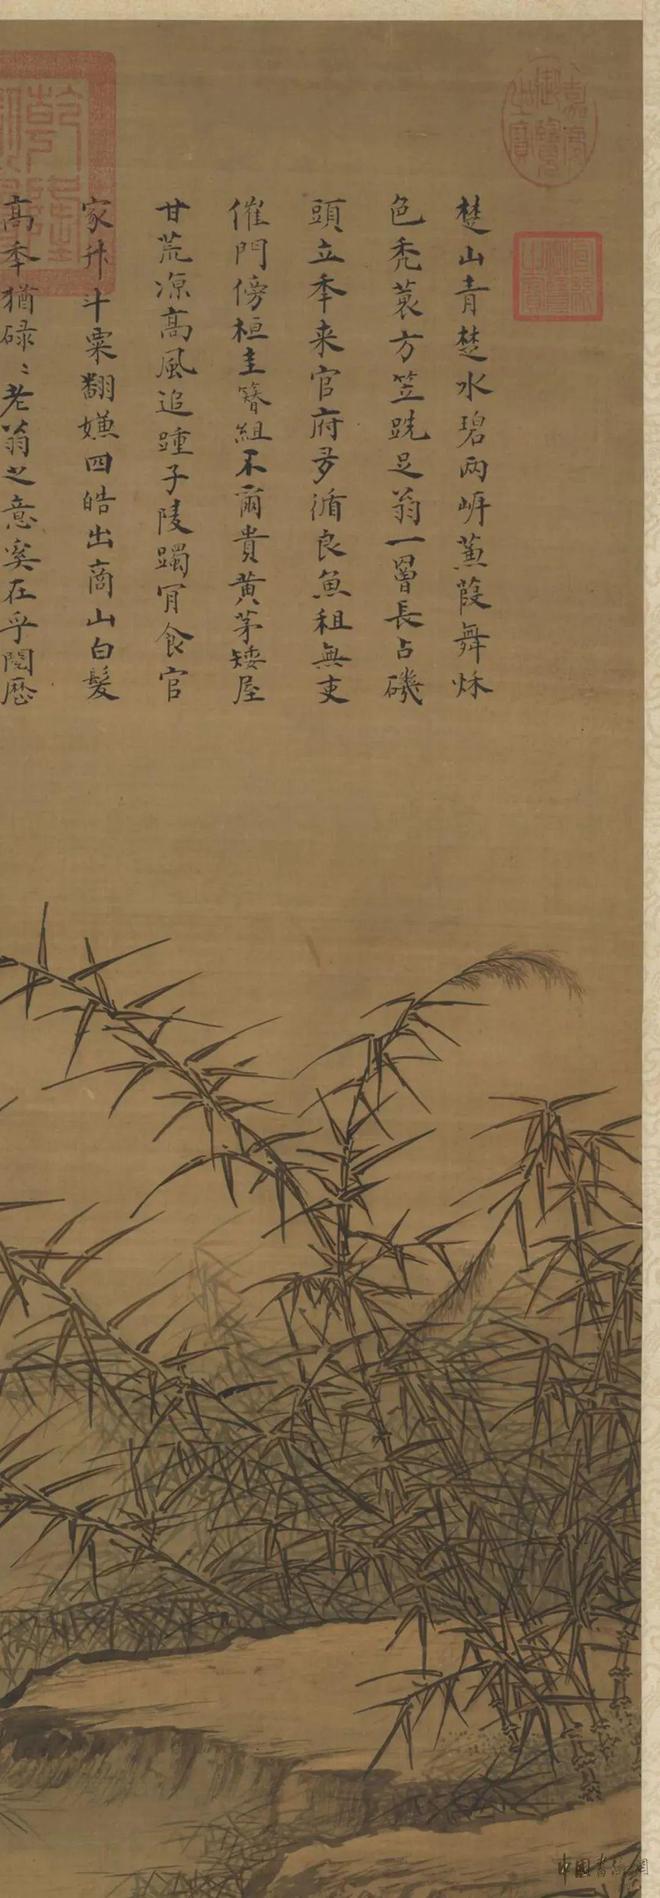 楚山青楚水碧兩岍蒹葭舞秌
色秃蓑方笠跣足翁一罾長占磯
頭立秊来官府多循良魚租無吏
催門傍桓圭簪組不爾貴黄茅矮屋
甘荒凉高風追踵子陵躅肎食官
家升斗粟翻嫌四皓出商山白髮
高秊猶碌〻老翁之意奚在乎閲歷
嘉慶御覽之寶
乾隆